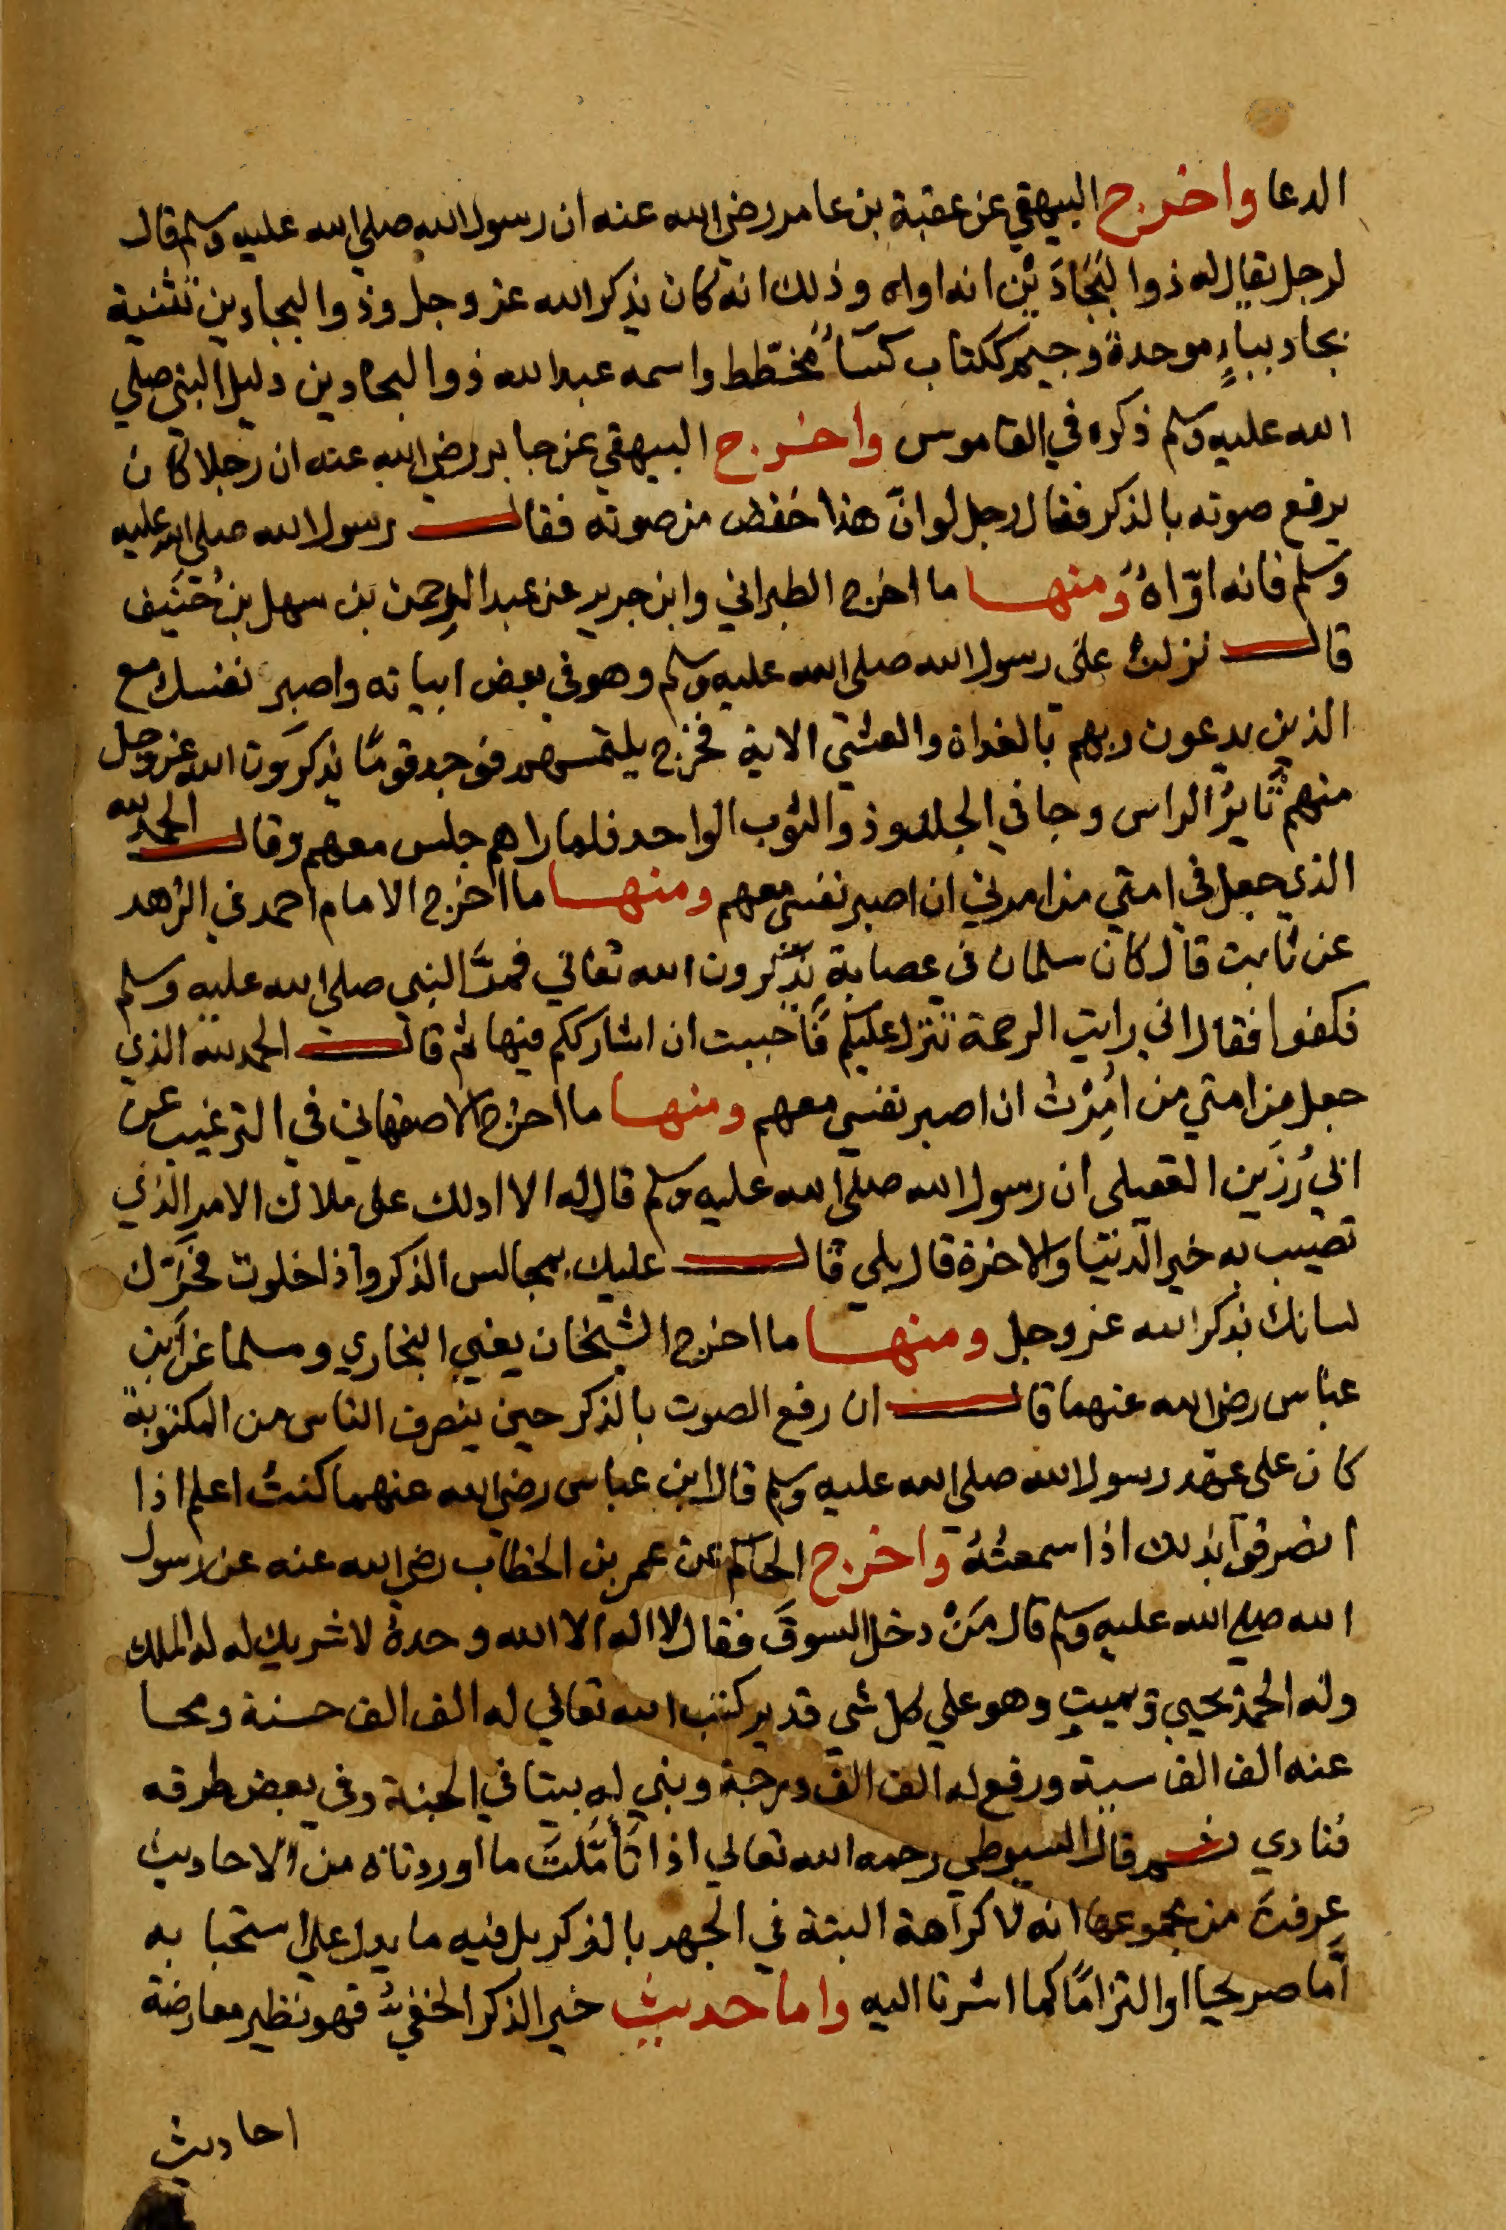 الدعا واخرج البيهقي عن عقبة بن عامر رضي الله عنه ان رسول الله صلي الله عليه وسلم قال
لرجل يقال له ذوالبَجَادَيْن انه اواه وذلك انه كان يذكر الله عز وجل وذوالبجادين تثنية
بجاد بباءٍ موحدة وجيم ككتاب كسَاءٌ مُخطّط واسمه عبد الله ذوالبجادين دليل النبي صلي
الله عليه وسلم ذكره في القاموس واخرج البيهقي عن جابر رضي الله عنه ان رجلا كان
يرفع صوته بالذكر فقال رجل لو انّ هذا خفض من صوته فقال رسول الله صلي الله عليه
وسلم فانه اوّاهٌ ومنها ما اخرج الطبراني وابن جرير عن عبد الرحمن بن سهل بن حُنَيف
قال نزلت علي رسول الله صلي الله عليه وسلم وهو في بعض ابياته واصبر نفسك مع
الذين يدعون ربهم بالغداة والعشي الاية فخرج يلتمسهم فوجد قومًا يذكرون الله عز وجل
منهم ثايرُ الراس وجافي الجلد وذوالثوب الواحد فلما راهم جلس معهم وقال الحمد لله
الذي جعل في امتي من امرني ان اصبر نفسي معهم ومنها ما اخرج الامام احمد في الزهد
عن ثابت قال كان سلمان في عصابة يذكرون الله تعالي فمرَّ النبي صلي الله عليه وسلم
فكفوا فقال اني رايت الرحمة تنزل عليكم فاحببت ان اشارككم فيها ثم قال الحمد لله الذي
جعل من امتي من اُمِرْتُ ان اصبر نفسي معهم ومنها ما اخرج الاصفهاني في الترغيب عن
ابي رُزَين العقيلي ان رسول الله صلي الله عليه وسلم قال له الا ادلك علي ملاك الامر الذي
تصيب به خير الدنيا والاخرة قال بلي قال عليك بمجالس الذكر واذا خلوت فحَرِّك
لسانك بذكر الله عز وجل ومنها ما اخرج الشيخان يعني البخاري ومسلما عن ابن
عباس رضي الله عنهما قال ان رفع الصوت بالذكر حين ينصرف الناس من المكتوبة
كان علي عهد رسول الله صلي الله عليه وسلم قال ابن عباس رضي الله عنهما كنتُ اعلم اذا
انصرفوا بذلك اذا سمعتُهُ واخرج الحاكم عن عمر بن الخطاب رضي الله عنه عن رسول
الله صلي الله عليه وسلم قال مَنْ دخل السوقَ فقال لا اله الا الله وحدهُ لا شريك له له الملك
وله الحمد يحيي ويميت وهو علي كل شي قدير كتب الله تعالي له الف الف حسنة ومحا
عنه الف الف سية ورفع له الف الف درجة وبني له بيتا في الجنة وفي بعض طرقه
فنادي ثم قال السيوطي رحمه الله تعالي اذا تَأَمَّلتَ ما اوردناه من الاحاديث
عرفتَ من مجموعها انه لا كراهة البتة في الجهر بالذكر بل فيه ما يدل علي استحبابه
اما صريحا او التزامًا كما اشرنا اليه واما حديث خير الذكر الخفيُّ فهو نظير معارضة
احاديث